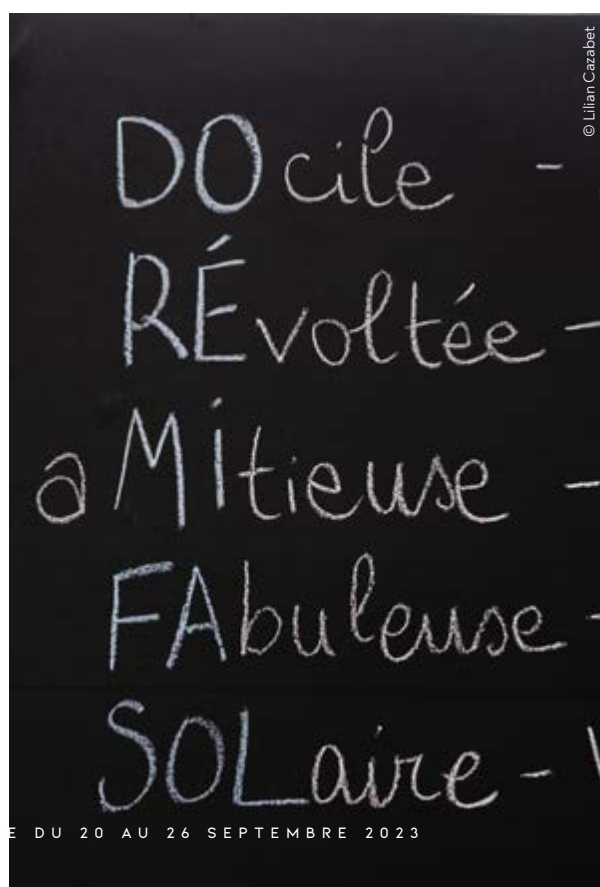 © Lilian Cazabet
DOcile -
RÉvoltée -
aMitieuse -
FAbuleuse -
SOLaire -
E DU 20 AU 26 SEPTEMBRE 2023